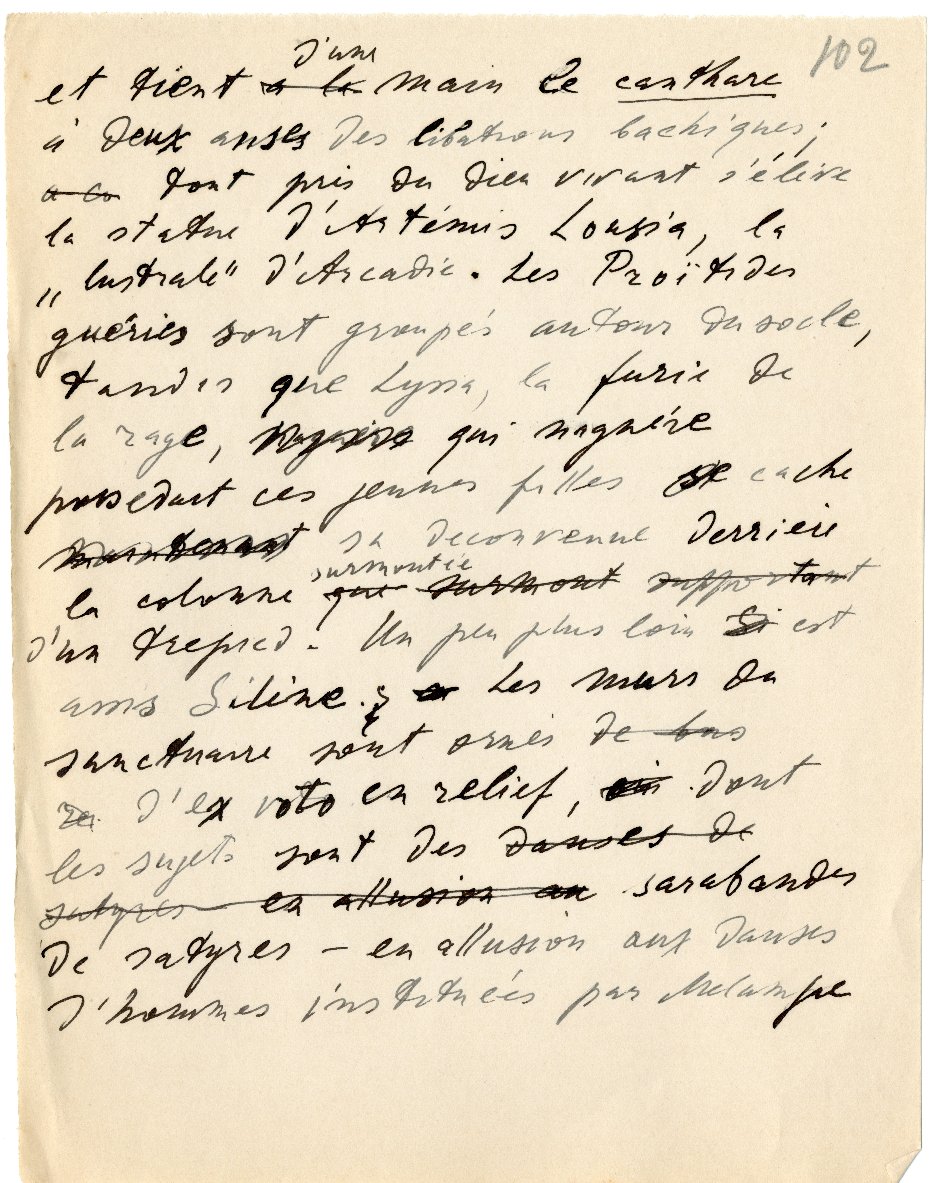 102
d'une
et tient a la main le canthare
à deux anses des libations bachiques;
a co tout près du dieu vivant s'élève
la statue d'Artémis Lousia, la
„lustrale" d'Arcadie. Les Proïtides
guéries sont groupés autour du socle,
tandis que Lyssa, la furie de
la rage, naguère qui naguère
possedait ces jeunes filles se cache
maintenant sa deconvenue derrière
surmontée
la colonne que surmont supportant
d'un trepied. Un peu plus loin Si est
assis Silène. Les murs du
sanctuaire sont ornés de bas
re d'ex voto en relief, dont
les sujets sont des danses de
satyres en allusion au sarabandes
de satyres – en allusion aux danses
d'hommes instituées par Melampe